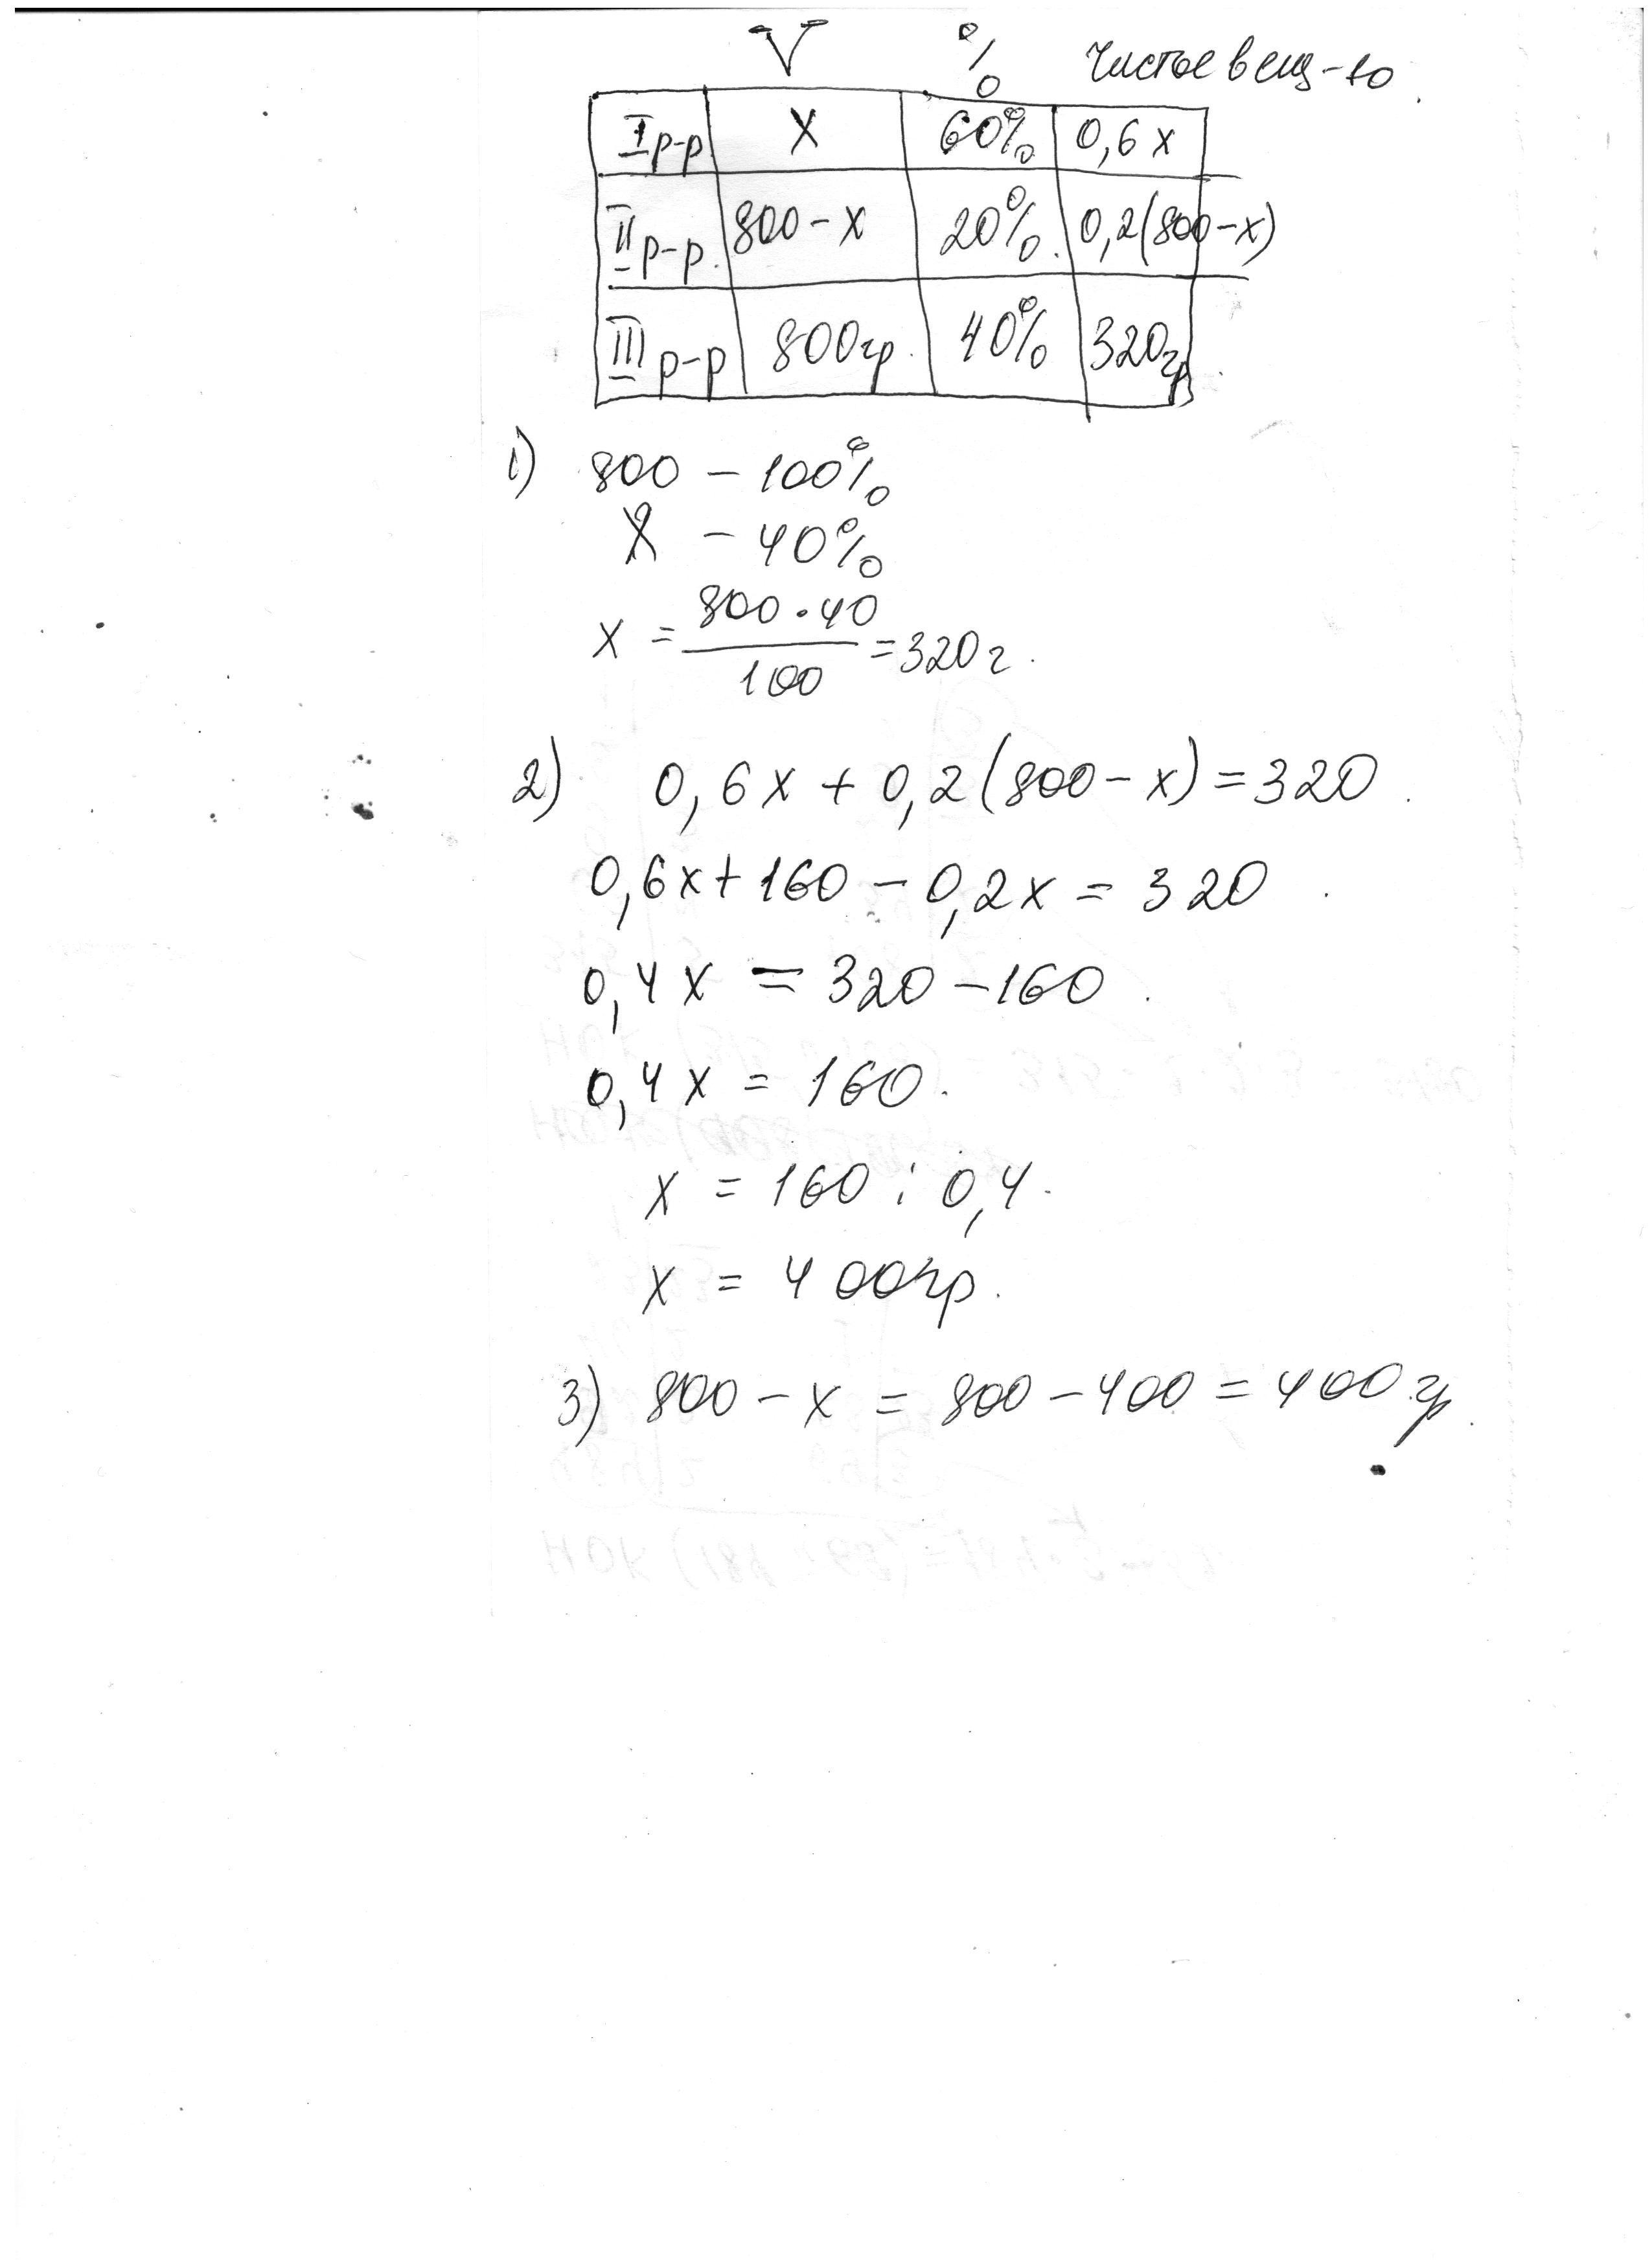 V % Чистое вещ-во
I р-р. X 60% 0,6x
II р-р. 800-x 20%. 0,2(800-x)
III р-р 800гр. 40% 320гр.
1) 800 - 100%
X - 40%
x = 800·40/100 = 320г.
2) 0,6x + 0,2(800-x) = 320.
0,6x + 160 - 0,2x = 320.
0,4x = 320 - 160.
0,4x = 160.
x = 160 : 0,4.
x = 400гр.
3) 800 - x = 800 - 400 = 400 гр.